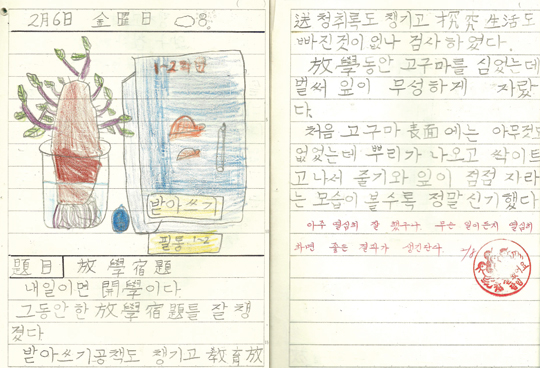 2月6日 金曜日 8.
1-2학년
받아쓰기
필통 1-2
題目 放學宿題
내일이면 開學이다
그동안 한 放學宿題를 잘 챙
겼다
받아쓰기공책도 챙기고 敎育放
送 청취록도 챙기고 探究生活도
빠진것이 없나 검사하였다.
放學동안 고구마를 심었는데
벌써 잎이 무성하게 자랐
다.
처음 고구마 表面에는 아무것도
없었는데 뿌리가 나오고 싹이트
고 나서 줄기와 잎이 점점 자라
는 모습이 볼수록 정말 신기했다
아주 열심히 잘 했구나 무슨 일이든지 열심히
하면 좋은 결과가 생긴단다